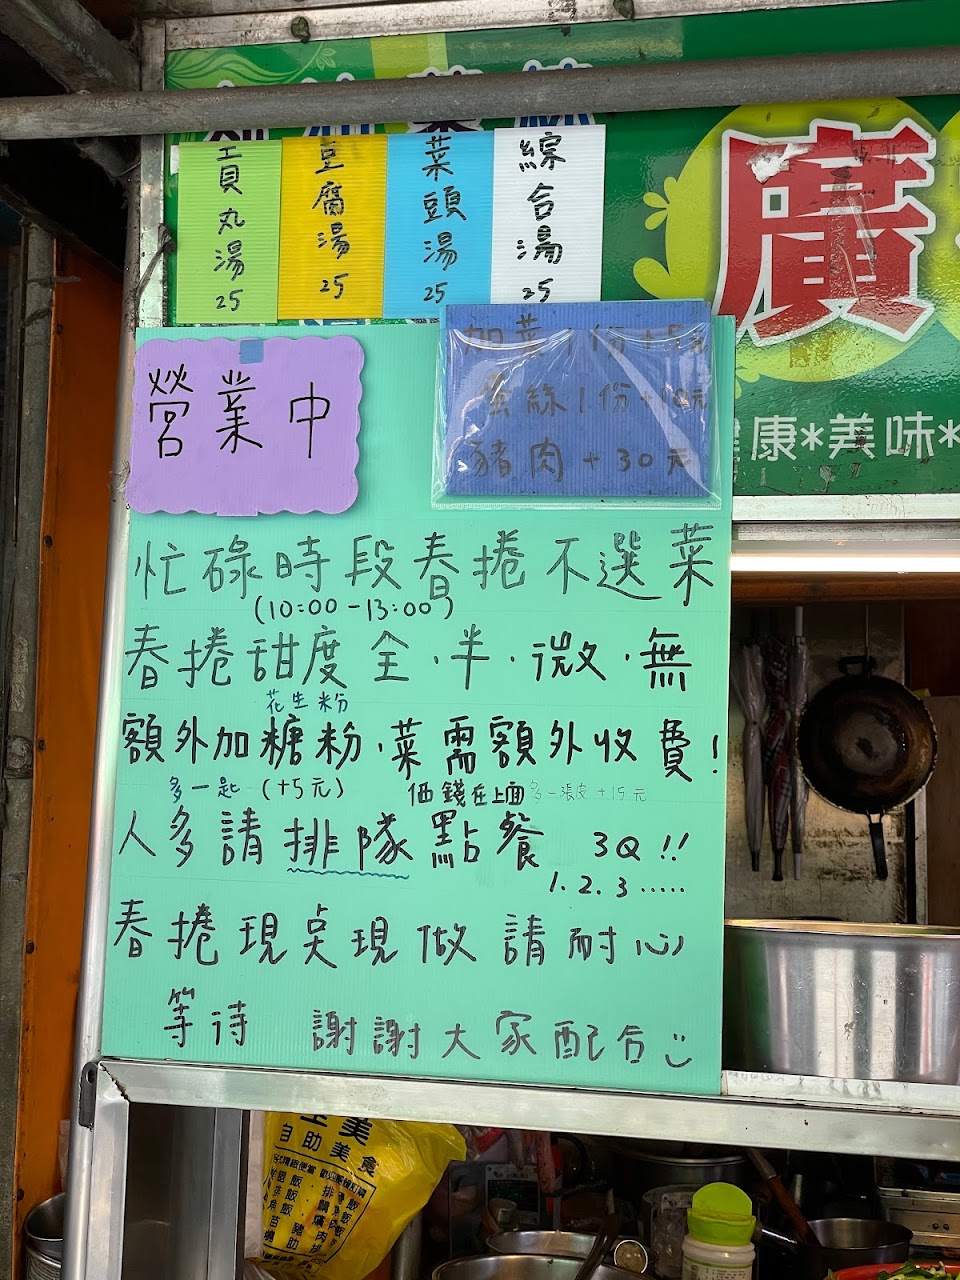 貢丸湯 25
豆腐湯 25
菜頭湯 25
綜合湯 25
廣
健康*美味*
營業中
加菜1份+5元
蛋絲1份+10元
豬肉+30元
忙碌時段春捲不選菜
(10:00-13:00)
春捲甜度 全.半.微.無
花生粉
額外加糖粉.菜需額外收費!
多一匙 (+5元) 価錢在上面 多一張皮+15元
人多請排隊點餐 3Q!!
1.2.3.....
春捲現点現做 請耐心
等待 謝謝大家配合
美
自助美食